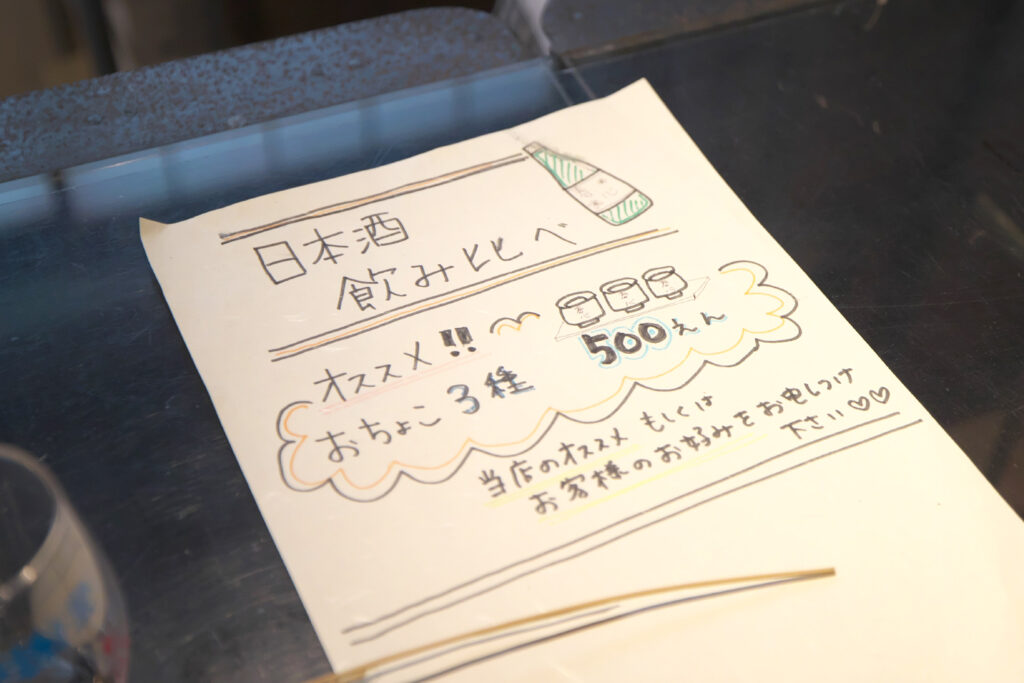 日本酒
飲み比べ
オススメ!!
おちょこ 3種
500えん
当店のオススメ もしくは
お客様のお好みをお申しつけ
下さい♡♡